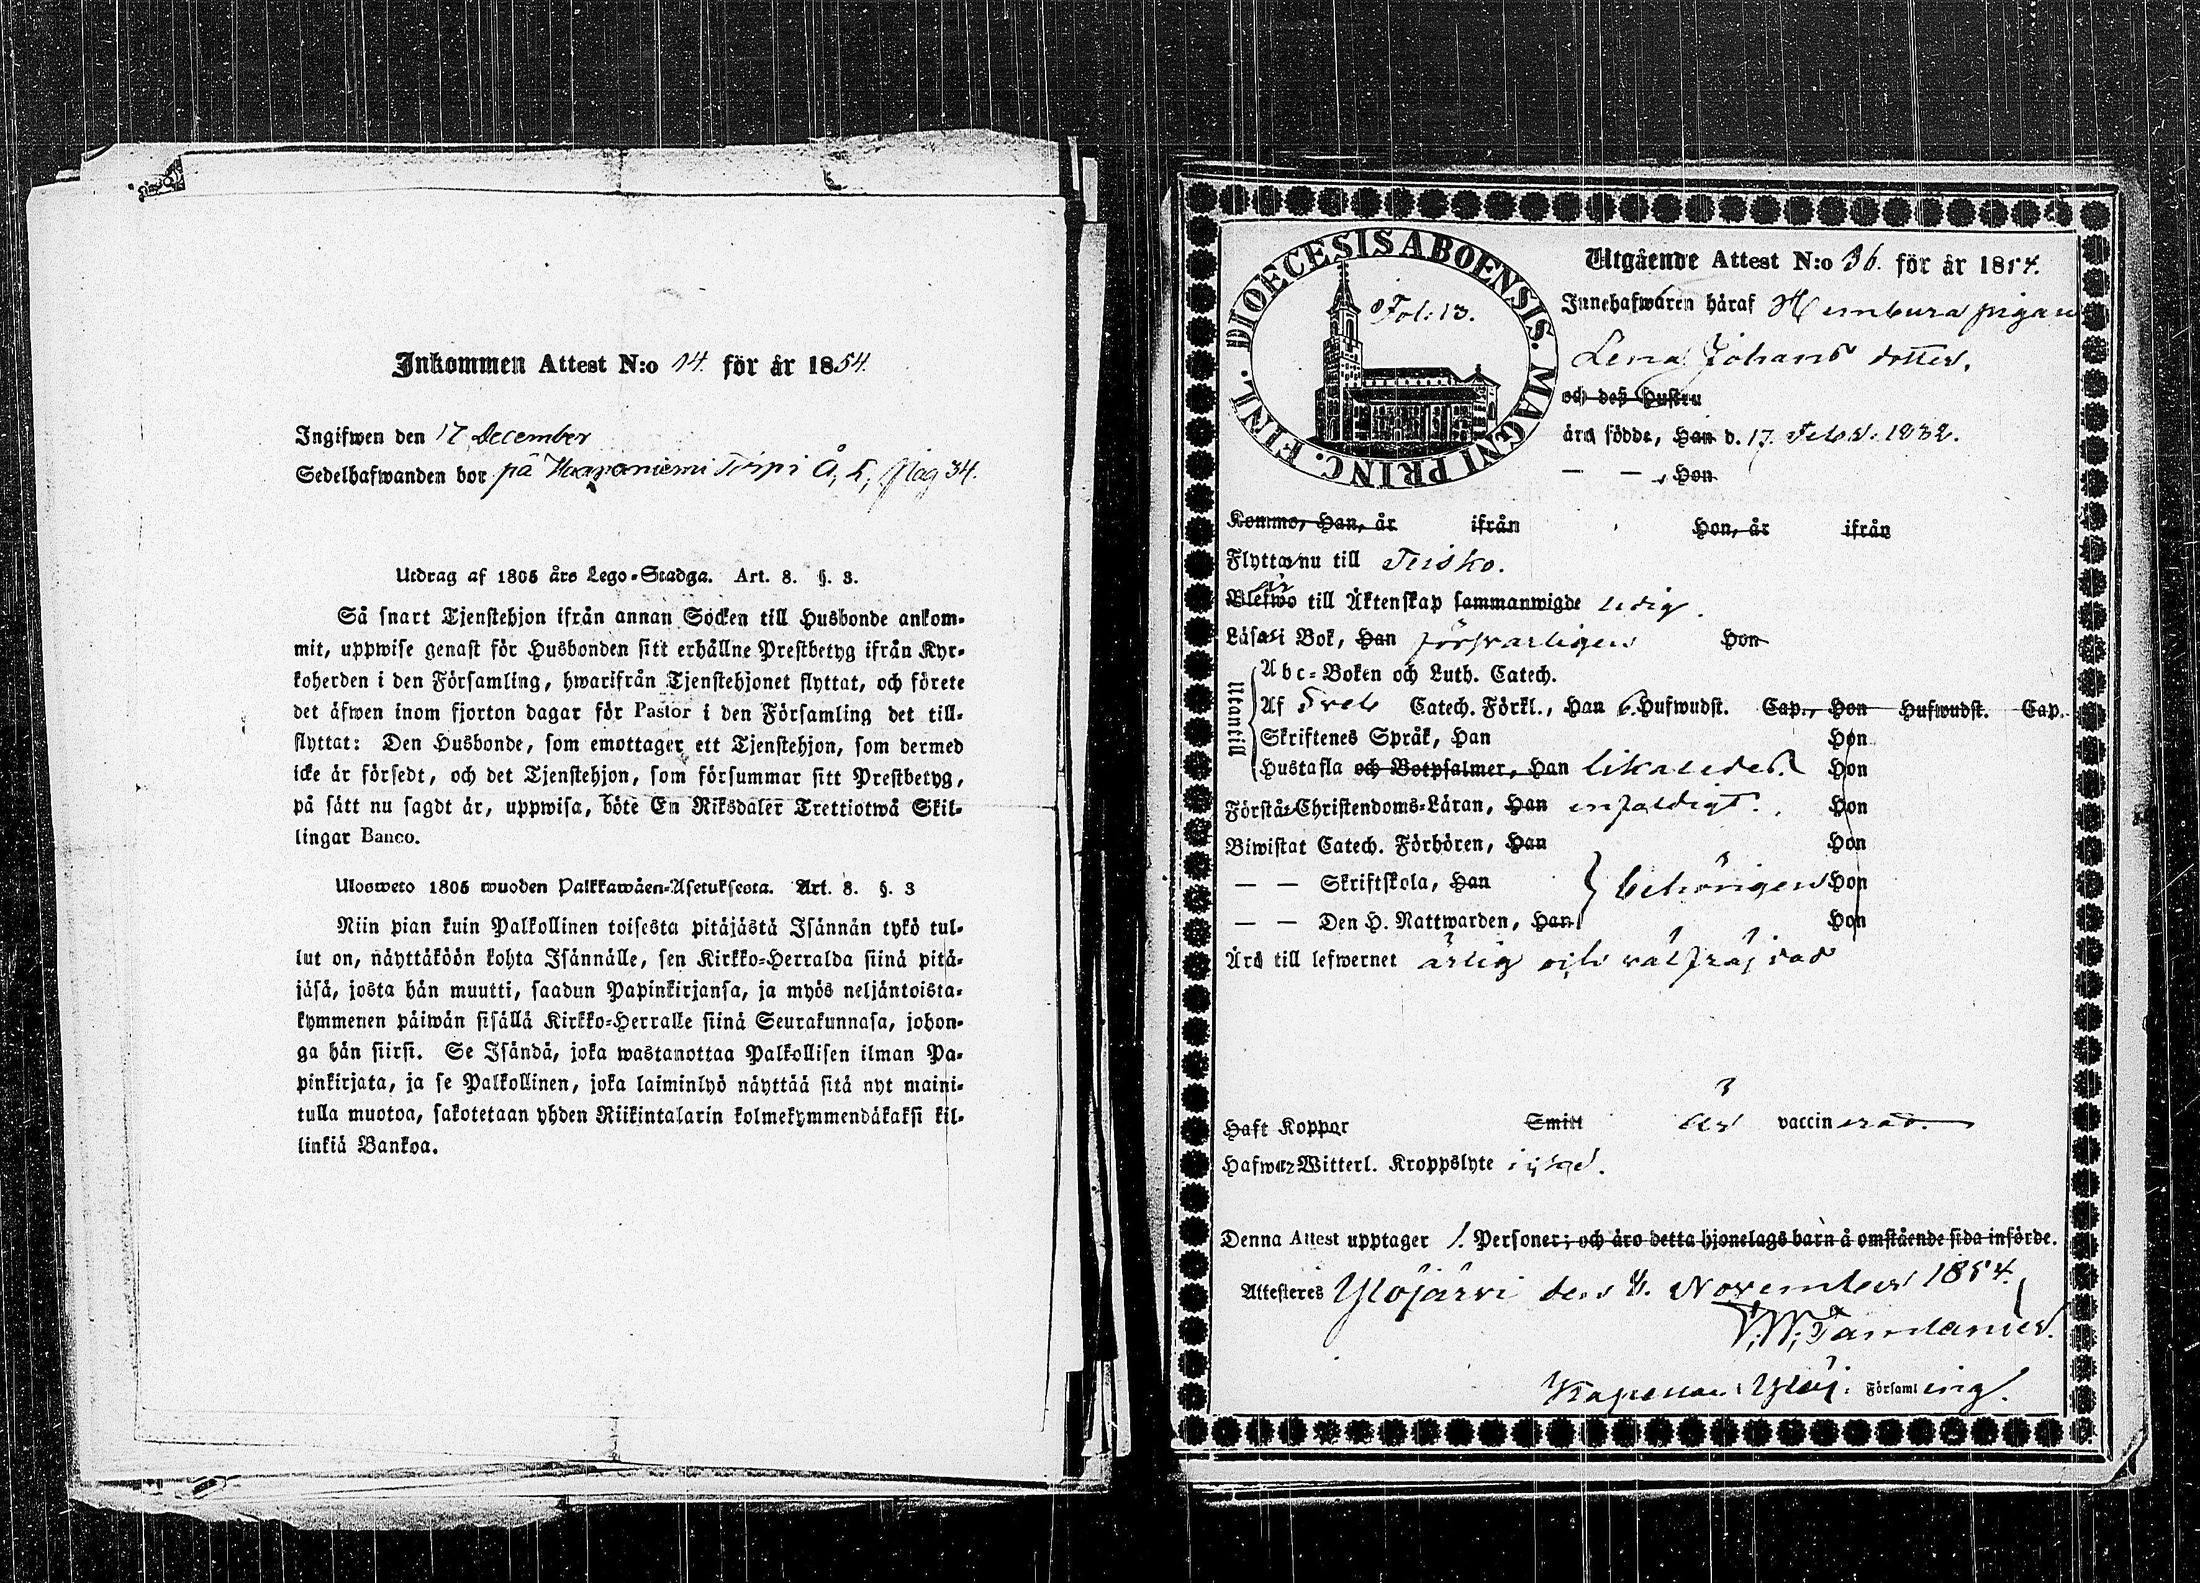 Inkommen Attest N:o 14. för år 1854.
Ingifwen den 17 December
Sedelhafwanden bor på Haapaniemi Torpi Å, K, pag 34.
Utdrag af 1805 års Lego-Stadga. Art. 8. §. 3.
Så snart Tjenstehjon ifrån annan Socken till Husbonde ankom-
mit, uppwise genast för Husbonden sitt erhållne Prestbetyg ifrån Kyr-
koherden i den Församling, hwarifrån Tjenstehjonet flyttat, och förete
det äfwen inom fjorton dagar för Pastor i den Församling det till-
flyttat: Den Husbonde, som emottager ett Tjenstehjon, som dermed
icke är försedt, och det Tjenstehjon, som försummar sitt Prestbetyg,
på sätt nu sagdt är, uppwisa, böte En Riksdaler Trettiotwå Skil-
lingar Banco.
Ulosweto 1805 wuoden Palkkawäen-Asetuksesta. Art. 8. §. 3
Niin pian kuin Palkollinen toisesta pitäjästä Isännän tykö tul-
lut on, näyttäköön kohta Isännälle, sen Kirkko-Herralda siinä pitä-
jäsä, josta hän muutti, saadun Papinkirjansa, ja myös neljäntoista-
kymmenen päiwän sisällä Kirkko-Herralle siinä Seurakunnasa, johon-
ga hän siirsi. Se Isändä, joka wastanottaa Palkollisen ilman Pa-
pinkirjata, ja se Palkollinen, joka laiminlyö näyttää sitä nyt maini-
tulla muotoa, sakotetaan yhden Riikintalarin kolmekymmendäkaksi kil-
linkiä Bankoa.
DIOECESIS ABOENSIS. MAGNI PRINC. FINL.
Fol: 13.
Utgående Attest N:o 36. för år 1854.
Innehafwaren häraf pigan
Lena Johans dotter.
och deß Hustru
äro födde, Han d. 17. Febr. 1832.
— — , Hon
Kommo, Han, år ifrån Hon, år ifrån
Flyttar nu till Teisko.
Blefwo är till Äktenskap sammanwigde ledig.
Läsa i Bok, Han försvarligen Hon
Utantill
Abc-Boken och Luth. Catech.
Af Sveb Catech. Förkl., Han 6. Hufwudst. Cap., Hon Hufwudst. Cap.
Skriftenes Språk, Han Hon
Hustafla och Botpsalmer, Han likaledes. Hon
Förstår Christendoms-Läran, Han enfaldigt. Hon
Biwistat Catech. Förhören, Han Hon
— — Skriftskola, Han behörigen Hon
— — Den H. Nattwarden, Han Hon
Äro till lefwernet ärlig och välfräjdad
Haft Koppor Smitt är vaccinerad.
Hafwa Witterl. Kroppslyte
Denna Attest upptager 1. Personer; och äro detta hjonelags barn å omstående sida införde.
Attesteres Ylöjärvi den November 1854.
Kapellan i Ylöj. Församling.